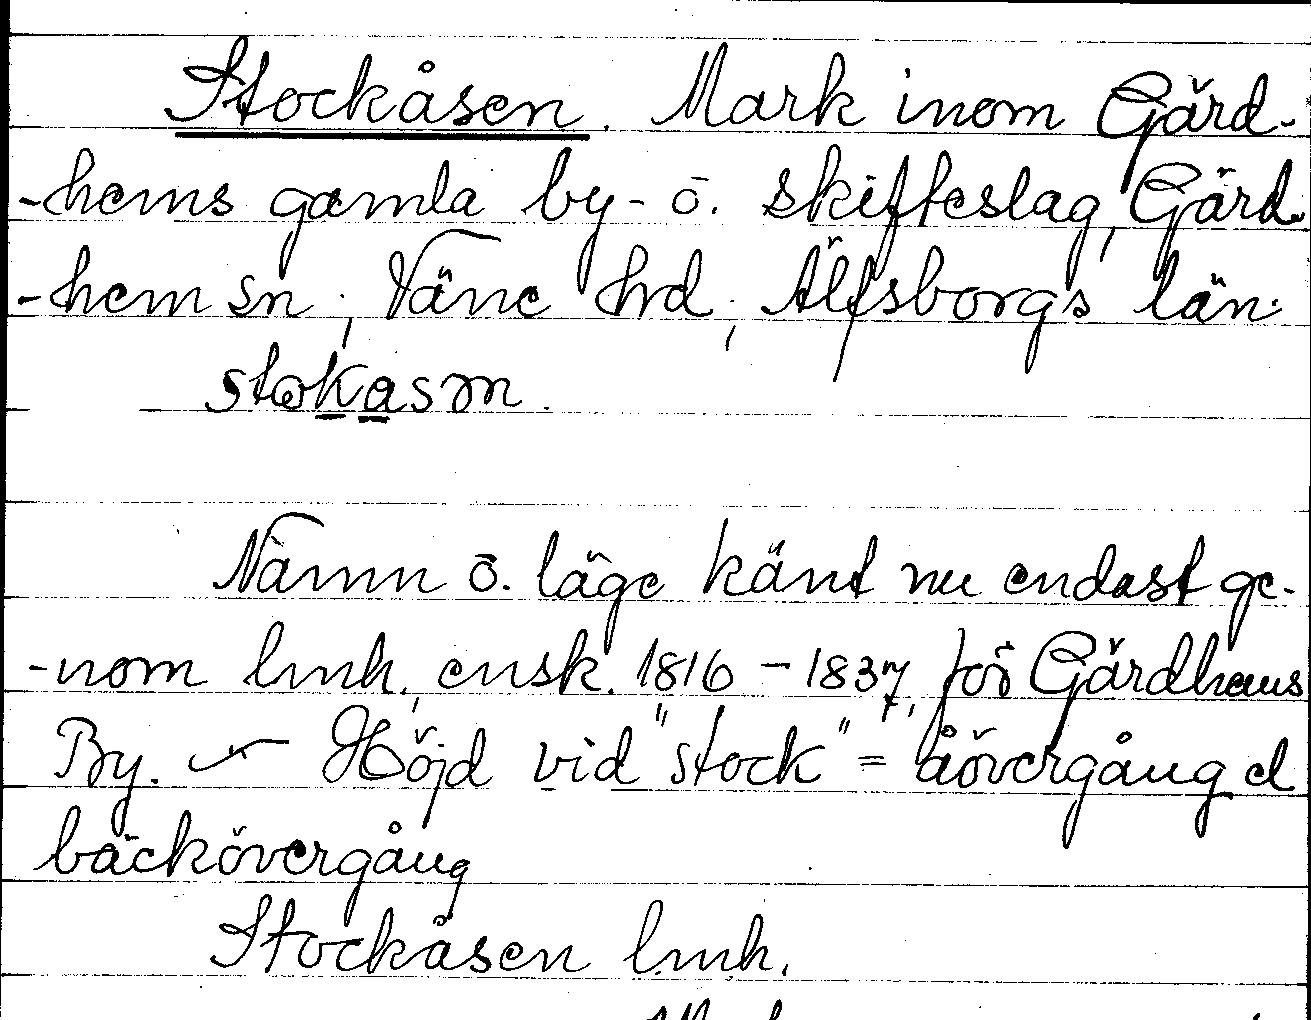 Stockåsen. Mark inom Gärd-
-hems gamla by- o. skifteslag, Gärd
-hem sn, Väne hd, Älfsborgs län.
stokasən.
Namn o. läge känt nu endast ge-
-nom lmh. ensk. 1816-1837, för Gärdhems
By. — Höjd vid "stock" = åövergång el
bäckövergång
Stockåsen lmh.